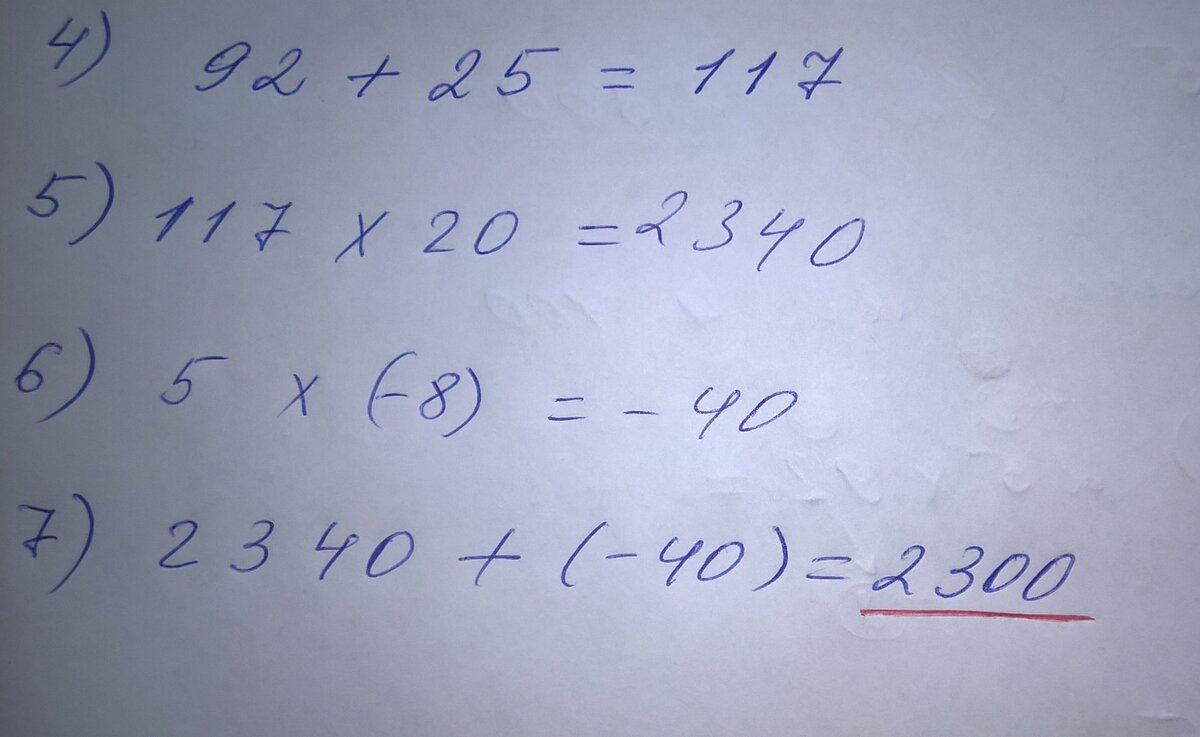 4) 92 + 25 = 117
5) 117 x 20 = 2340
6) 5 x (-8) = - 40
7) 2340 + (-40) = 2300